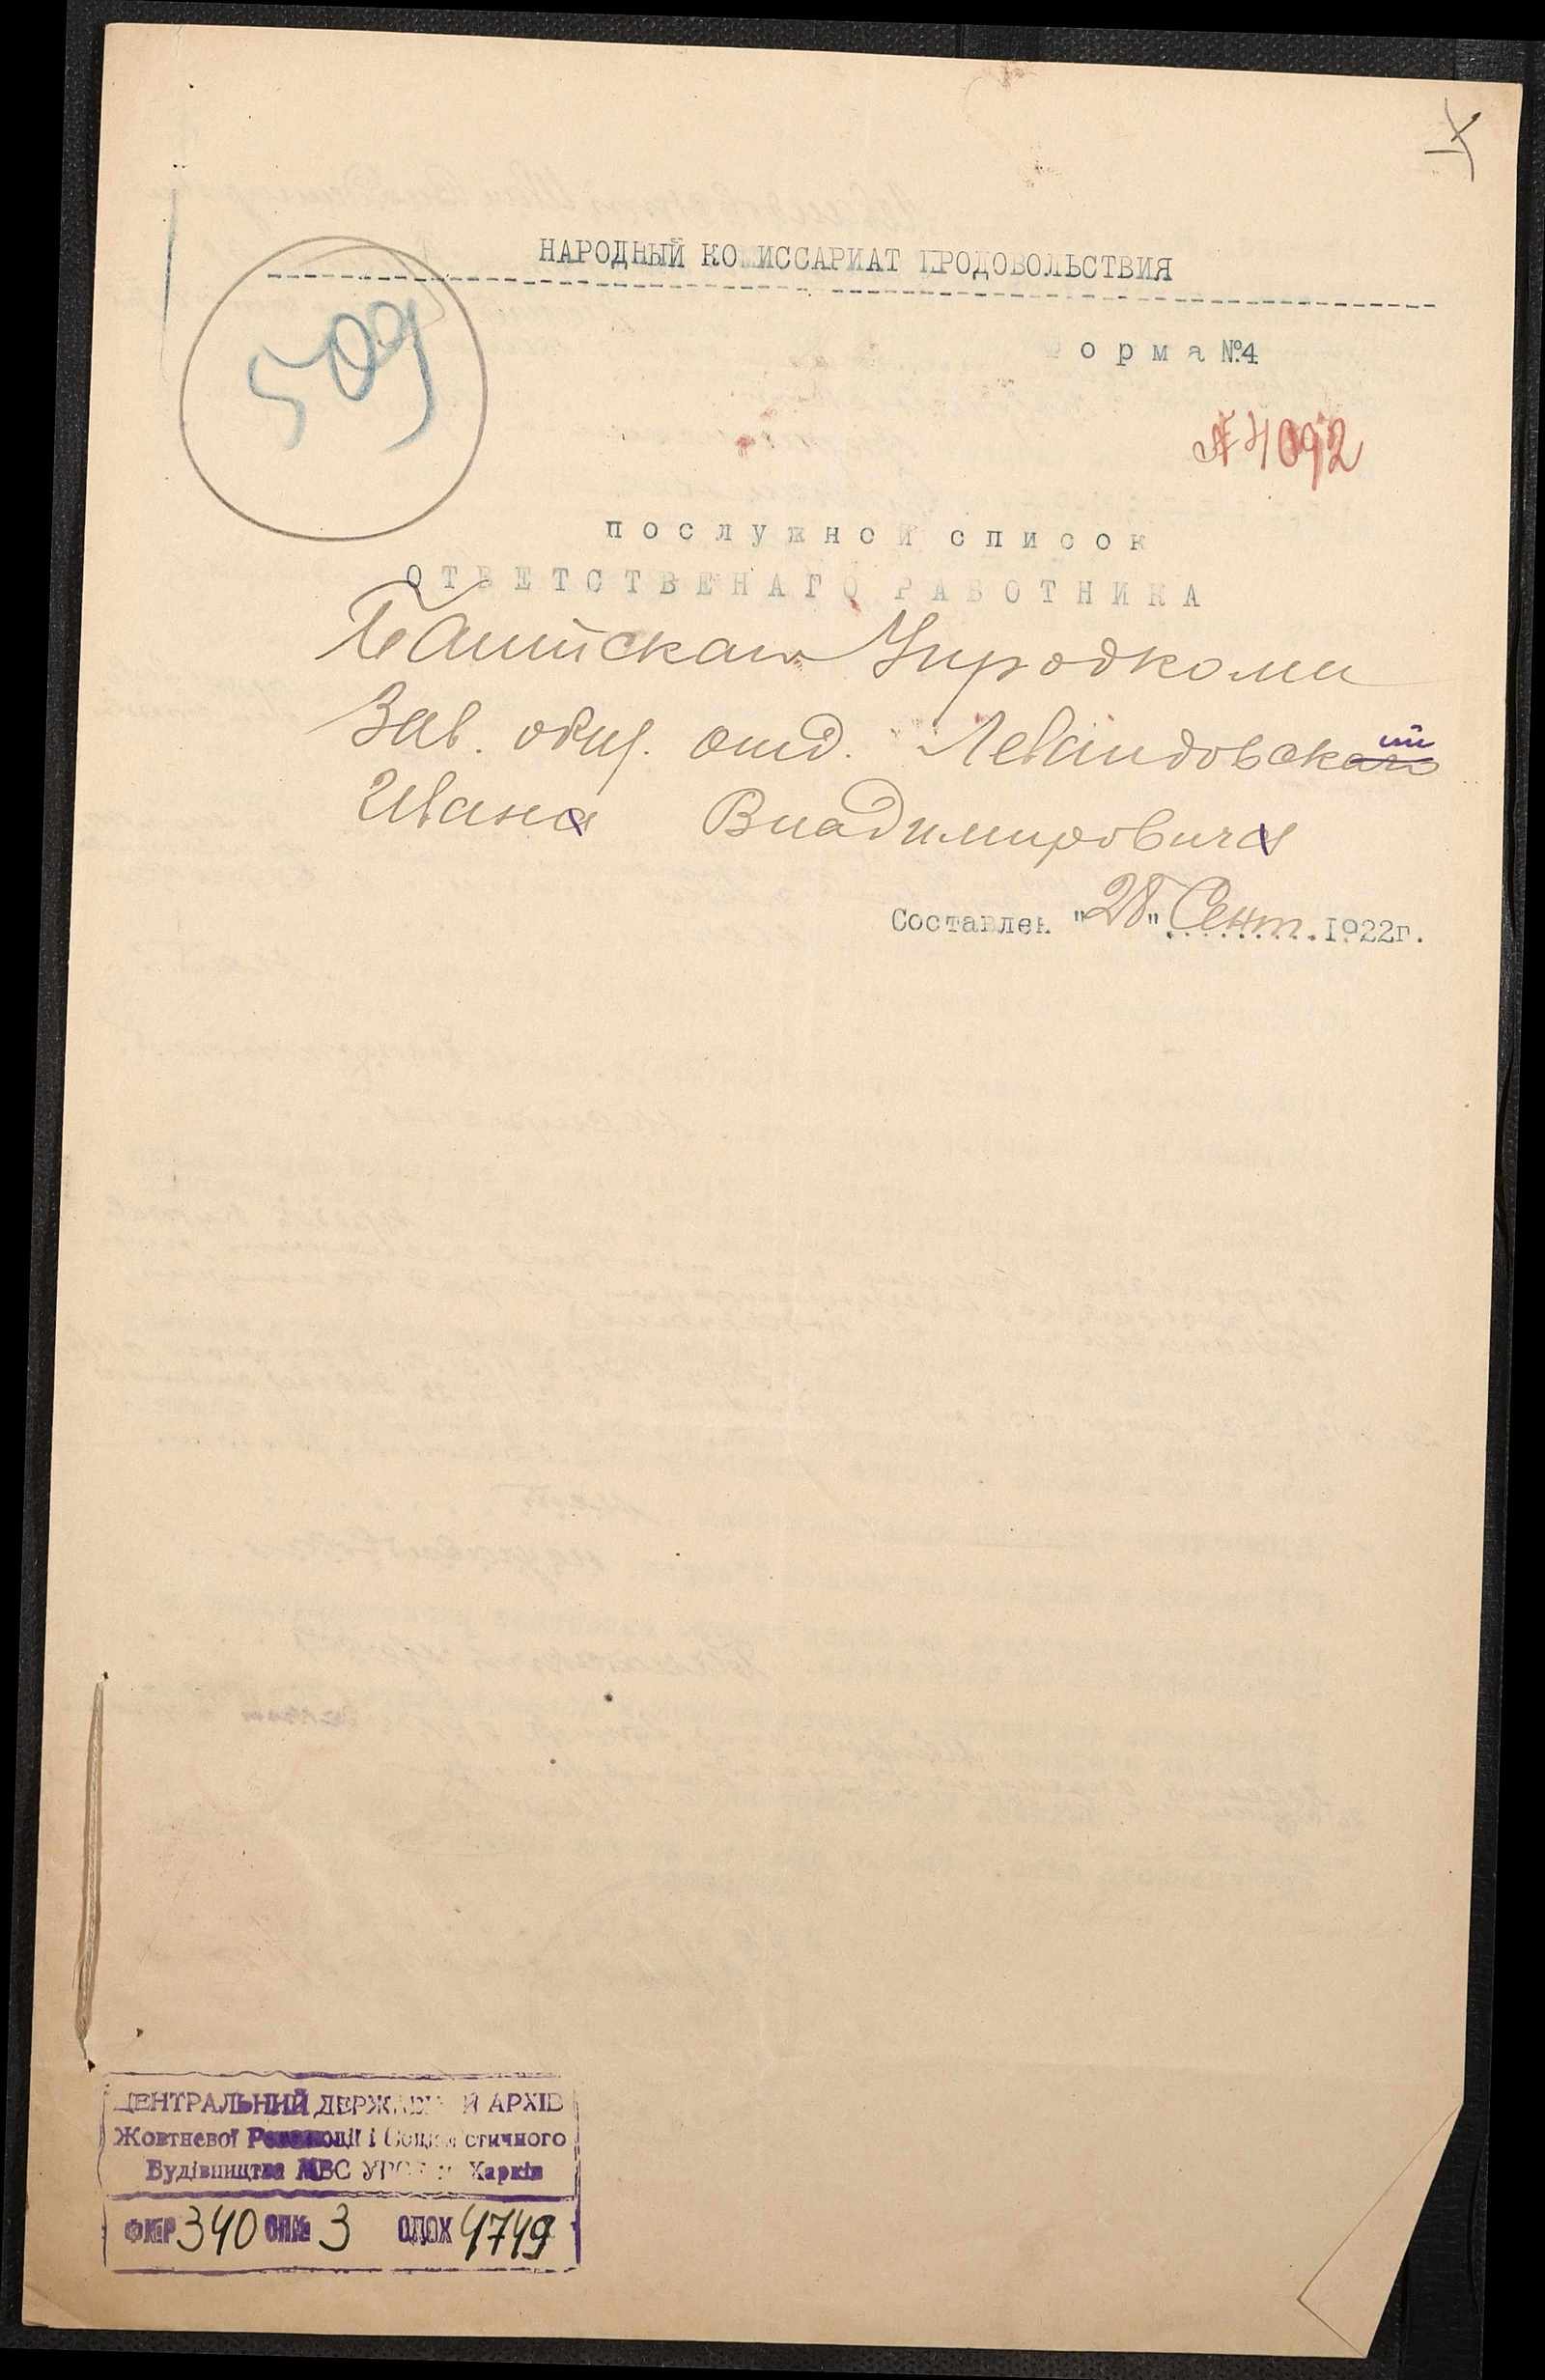 НАРОДНЫЙ КОМИССАРИАТ ПРОДОВОЛЬСТВИЯ
509
орма №4
№ 4092
ПОСЛУЖНОЙ СПИСОК
ОТВЕТСТВЕНАГО РАБОТНИКА
Упродкома
Зав. общ. отд. Левандовский
Иван Владимирович
Составлен "28" Сент. 1922г.
ЦЕНТРАЛЬНИЙ ДЕРЖАВНИЙ АРХІВ
Жовтневої Революції і Соціалістичного
Будівництва МВС УРСР м. Харків
Ф№Р 340 ОП№ 3 ОДОХ 4749